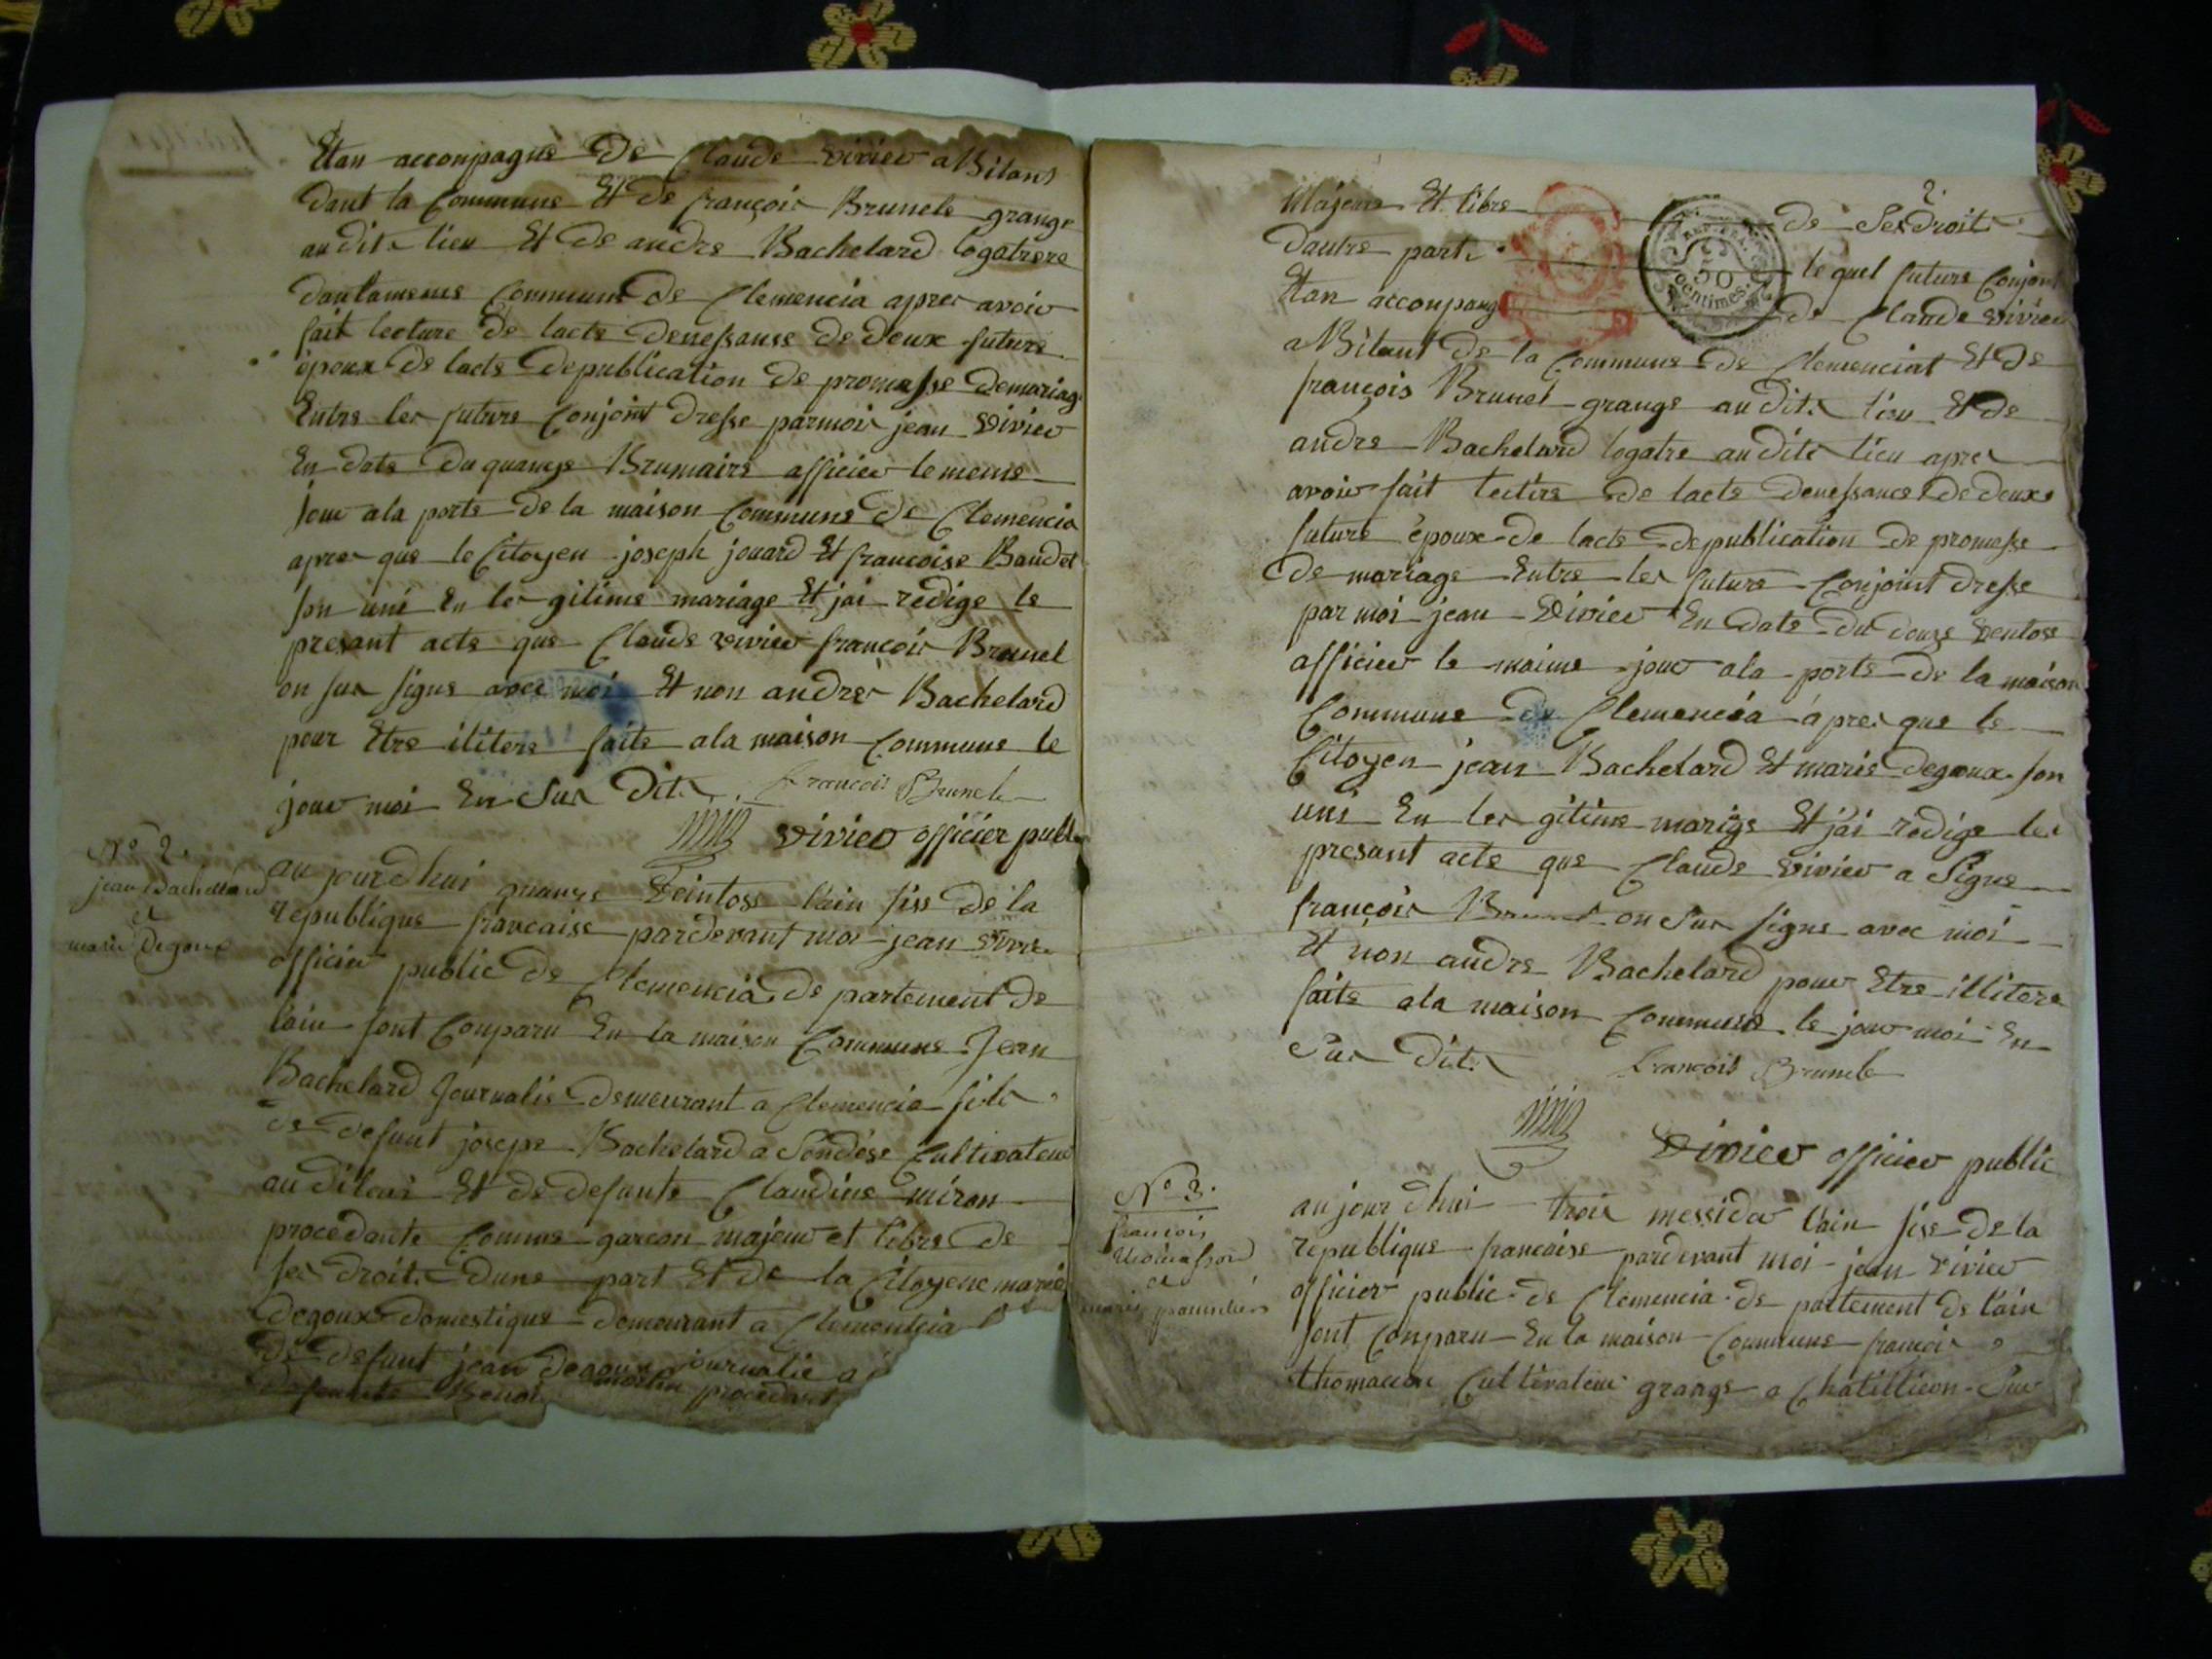 Etan acconpagné de Claude vivier abitans
dant la Commune Et de françois Brunele grange
audit lieu Et de andre Bachelard logatrere
dantameme Commune de Clemencia apres avoir
fait lecture de lacte denessanse de deux future
époux de lacte depublication de promesse demariag
Entre les future Conjoint dresse parmoi jean vivier
En date du quainze Brumaire afficier lememe
jour ala porte de la maison Commune de Clemencia
apres que le Citoyen joseph jouard Et francoise Baudet
son uni En les gitime mariage Et jai redige le
presant acte que Claude vivier françois Brunel
on sus signe avec moi Et non andrer Bachelard
pour Etre ilitere faite ala maison Commune le
jour moi En Sus Dit. Francois Brunele
vivier officier publi
N° 2.
jean Bachelard
et
marie Degoux
au jourdhui quainze veintose l'ain siss de la
republique francaise pardevant moi jean vivie
officier public de Clemencia de partement de
l'ain sont Conparu En la maison Commune Jean
Bachelard Journalie demeurant a Clemencia fils
de defunt josepe Bachelard a Sondése Cultivateur
auditlieu Et de defunte Claudine miron
procedante Comme garcon majeur et libre de
ses droit. Dune part Et de la Citoyene marie
degoux domestique demeurant a Clemencia
de defunt jean degoux journalie a
defunte Benoi procedant
2
Majeure Et libre de Ses droit
dautre part. le quel future Conjoint
REP. FRA.
50
centimes.
Etan acconpang de Claude vivier
abitant de la Commune de Clemenciat Et de
françois Brunel grange audit. lieu Et de
andre Bachelard logatre audite lieu apres
avoir fait lectire de lacte denessance de deux
future époux de lacte depublication de promesse
de mariage Entre les future Conjoint dresse
par moi jean vivier En date du douze ventose
afficier le maime jour ala porte de la maison
Commune de Clemencia apres que le
Citoyen jean Bachelard Et marie degoux son
uni En les gitime marige Et jai redige les
presant acte que Claude vivier a Signe
françois Brunel on Sus signe avec moi
Et non andre Bachelard pour Etre illitere
faite ala maison Commune le jour moi En
Sus Dit. Francois Brunele
vivier officier public
N° 3.
francois
thomasson
et
marie
aujourdhui trois messidor l'ain siss de la
republique francaise pardevant moi jean vivier
officier public de Clemencia de partement de l'ain
sont Conparu En la maison Commune françois
thomasson Cultivateur grange a Chatillieon Sur